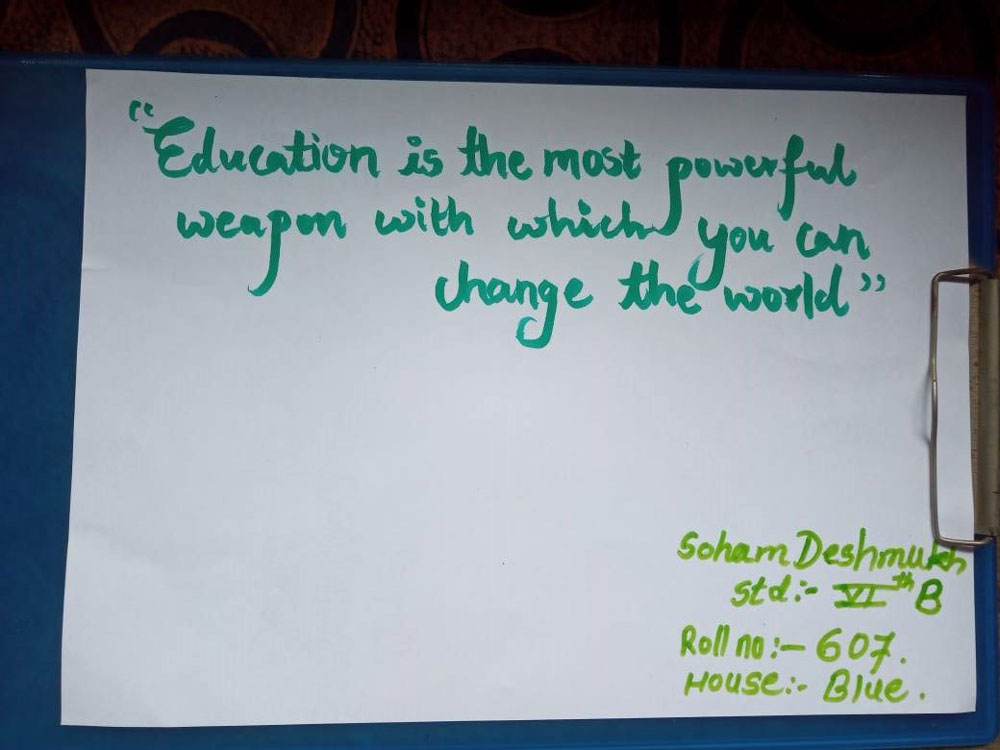 “Education is the most powerful
weapon with which you can
change the world”
Soham Deshmukh
Std:- VIth B
Roll no:- 607.
House:- Blue.